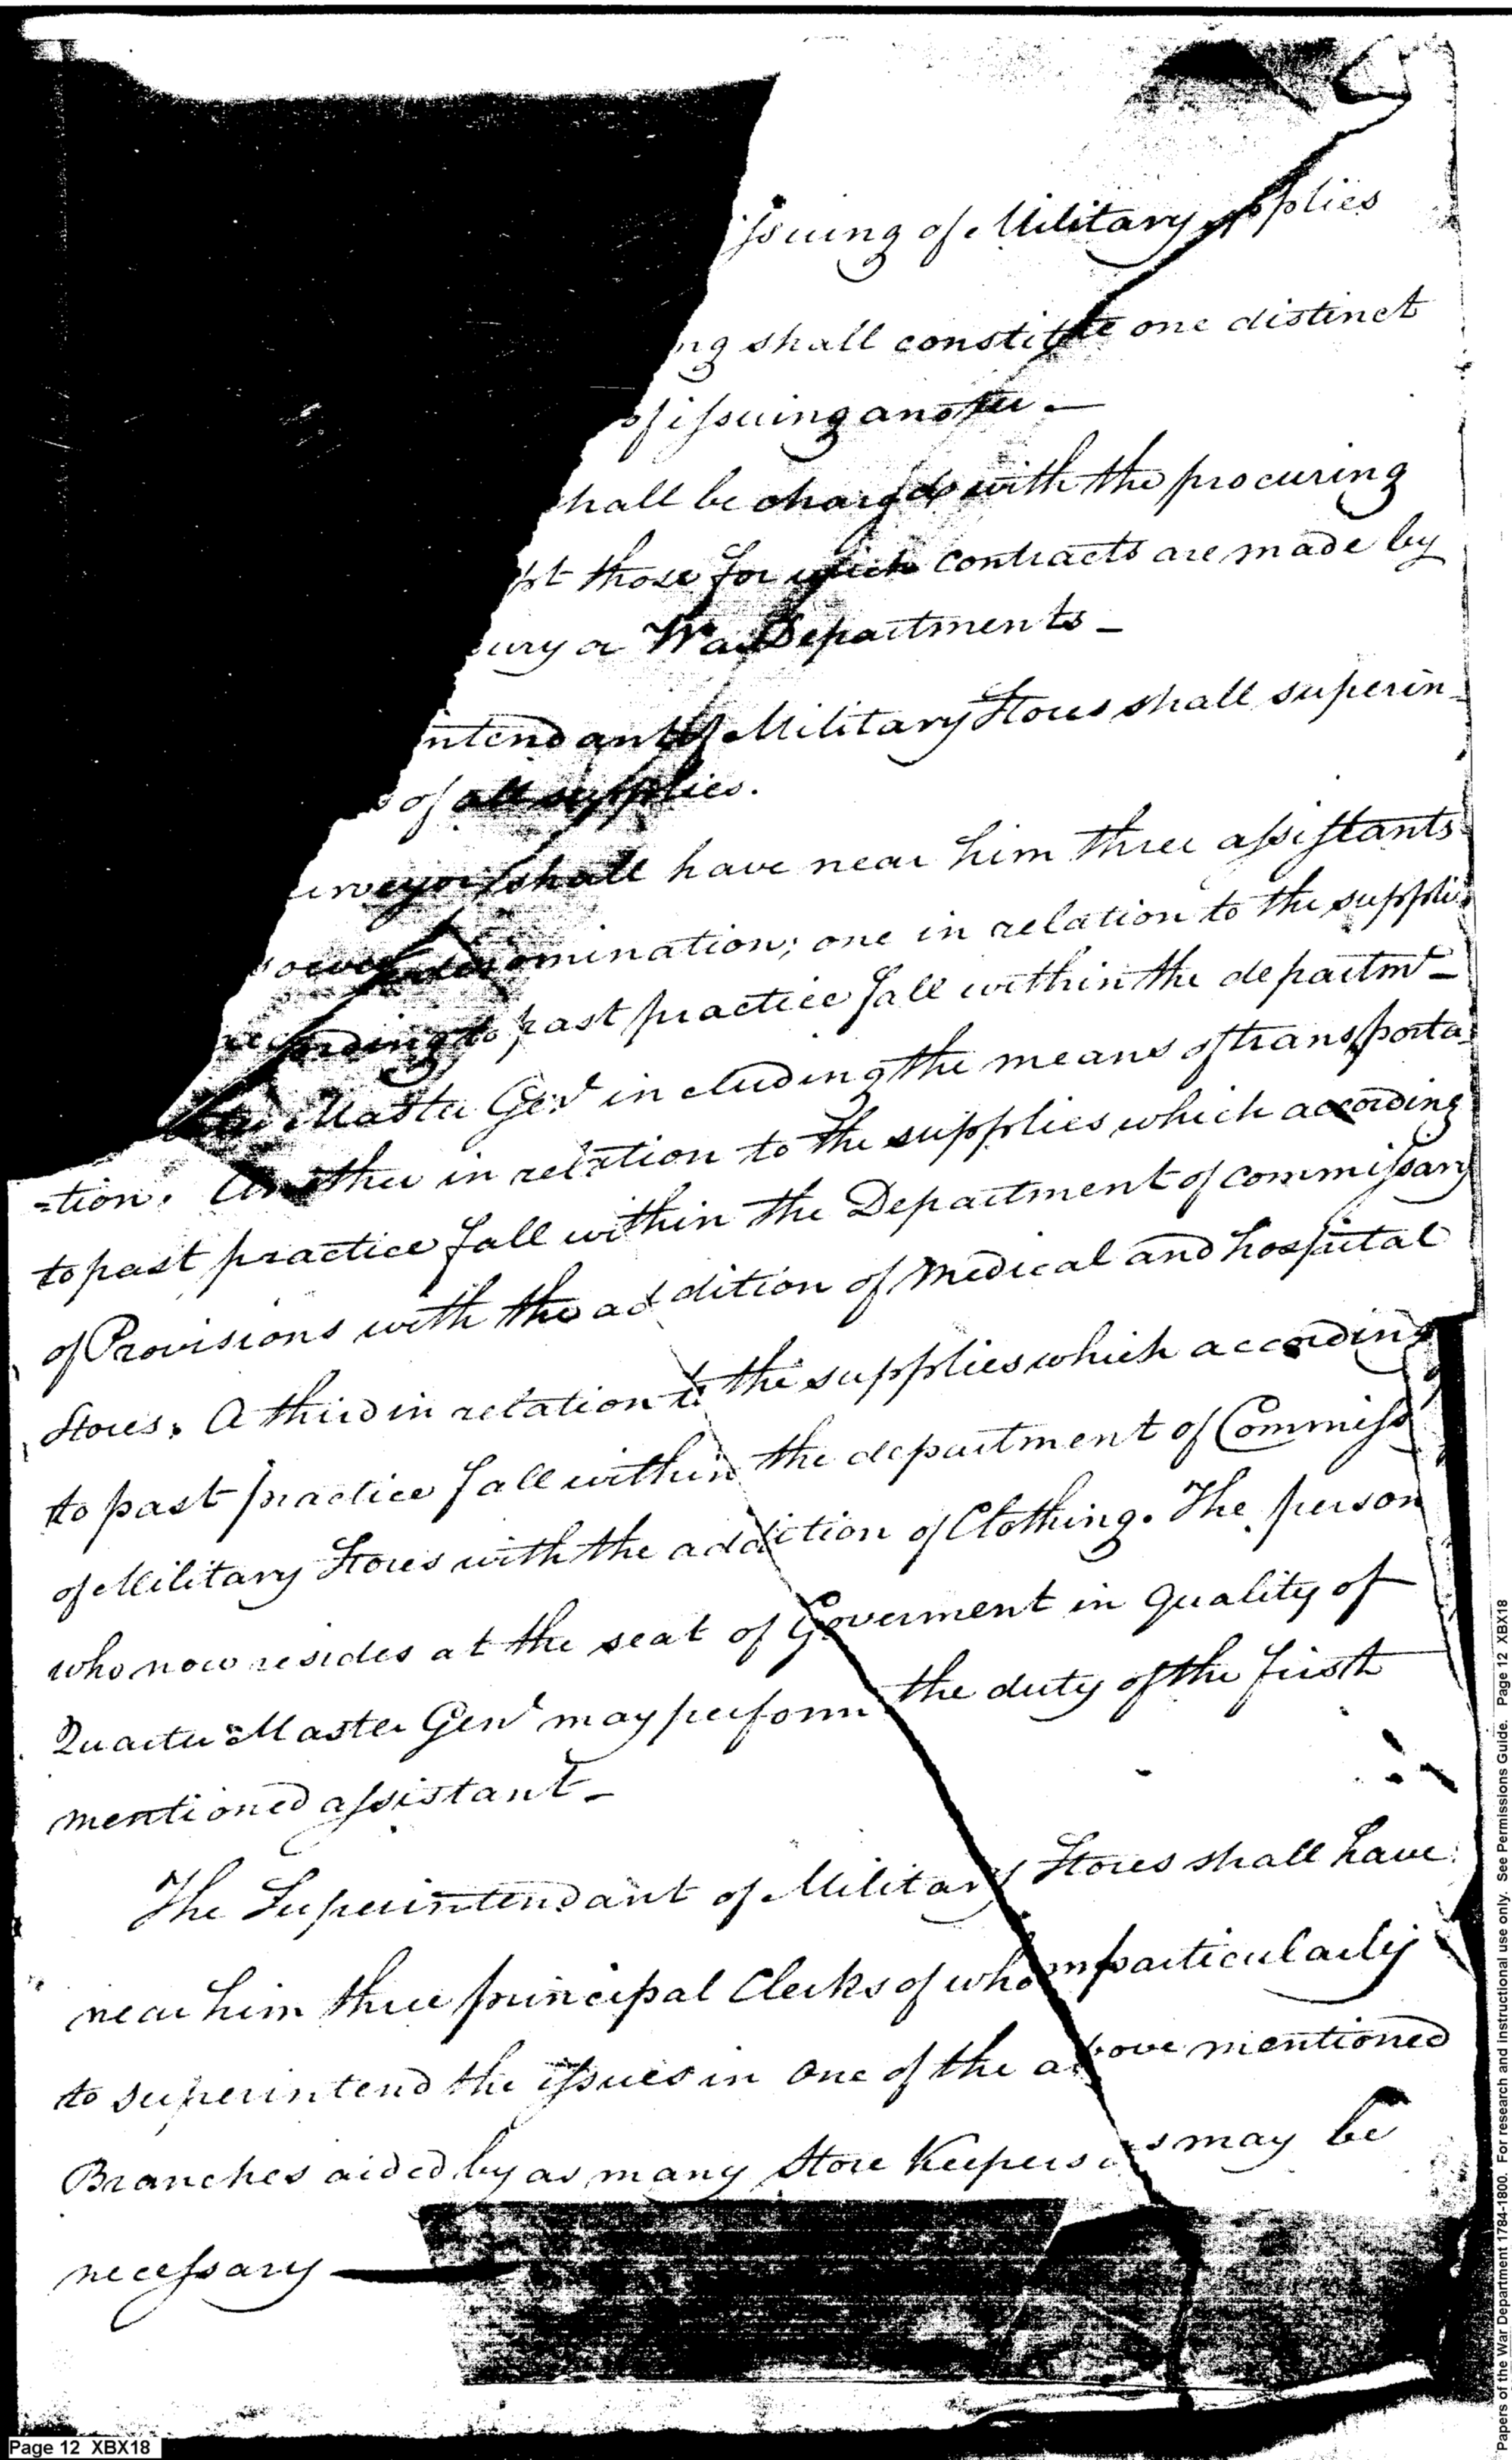 issuing of Military supplies
ng shall constitute one distinct
of issuing another —
shall be charged with the procuring
pt those for which contracts are made by
ury or War Departments —
ntendant of Military Stores shall superin-
s of all supplies.
urveyor shall have near him three assistants
soever denomination; one in relation to the supplies
re according to past practice fall within the departmt —
Master Genl including the means of transporta-
-tion. Another in relation to the supplies which according
to past practice fall within the Department of commissary
of Provisions with the addition of Medical and hospital
Stores. A third in relation to the supplies which according
to past practice fall within the department of Commiss
of Military Stores with the addition of Clothing. The person
who now resides at the seat of Goverment in quality of
Quarter Master Genl may perform the duty of the first
mentioned assistant —
The Superintendant of Military Stores shall have
near him three principal Clerks of whom particularly
to superintend the issues in one of the above mentioned
Branches aided by as many Store Keepers as may be
necessary —
Page 12 XBX18
Papers of the War Department 1784-1800. For research and instructional use only. See Permissions Guide. Page 12 XBX18